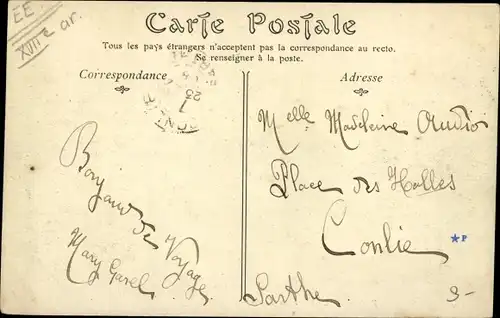 EE
XVIIIe ar.
Carte Postale
Tous les pays étrangers n'acceptent pas la correspondance au recto.
Se renseigner à la poste.
Correspondance
Adresse
Melle Madeleine
Place des Halles
Conlie
Sarthe
de Voyage
Mary
*P
3-